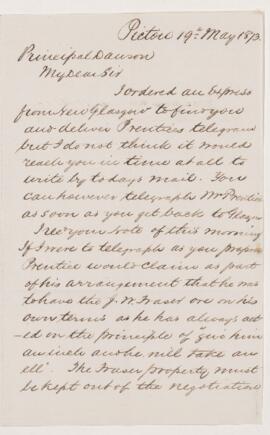 Pictou 19th May 1873.
Principal Dawson
My Dear Sir
I ordered an express
from New Glasgow to find you
and deliver Prentices telegram
but I do not think it would
reach you in time at all to
write by to days mail. You
can however telegraph Mr Prentice
as soon as you get back to Glasgow
I recd your note of this morning
If I were to telegraph as you propose
Prentice would claim as part
of his arrangement that he was
to have the J. W. Fraser ore on his
own terms as he has always act
-ed on the principle of "give him
an inch and he will take an
ell". The Fraser property must
be kept out of the negotiation